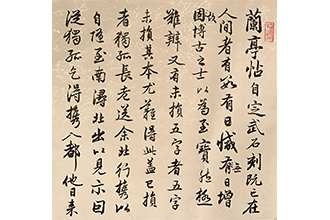 蘭亭帖自定武石刻既亡在
人間者有數有日減無日增
故博古之士以為至寶然極
難辨又有未損五字者五字
未損其本尤難得此蓋已損
者獨孤長老送余北行攜以
自隨至南潯北出以見示因
從獨孤乞得攜入都他日來